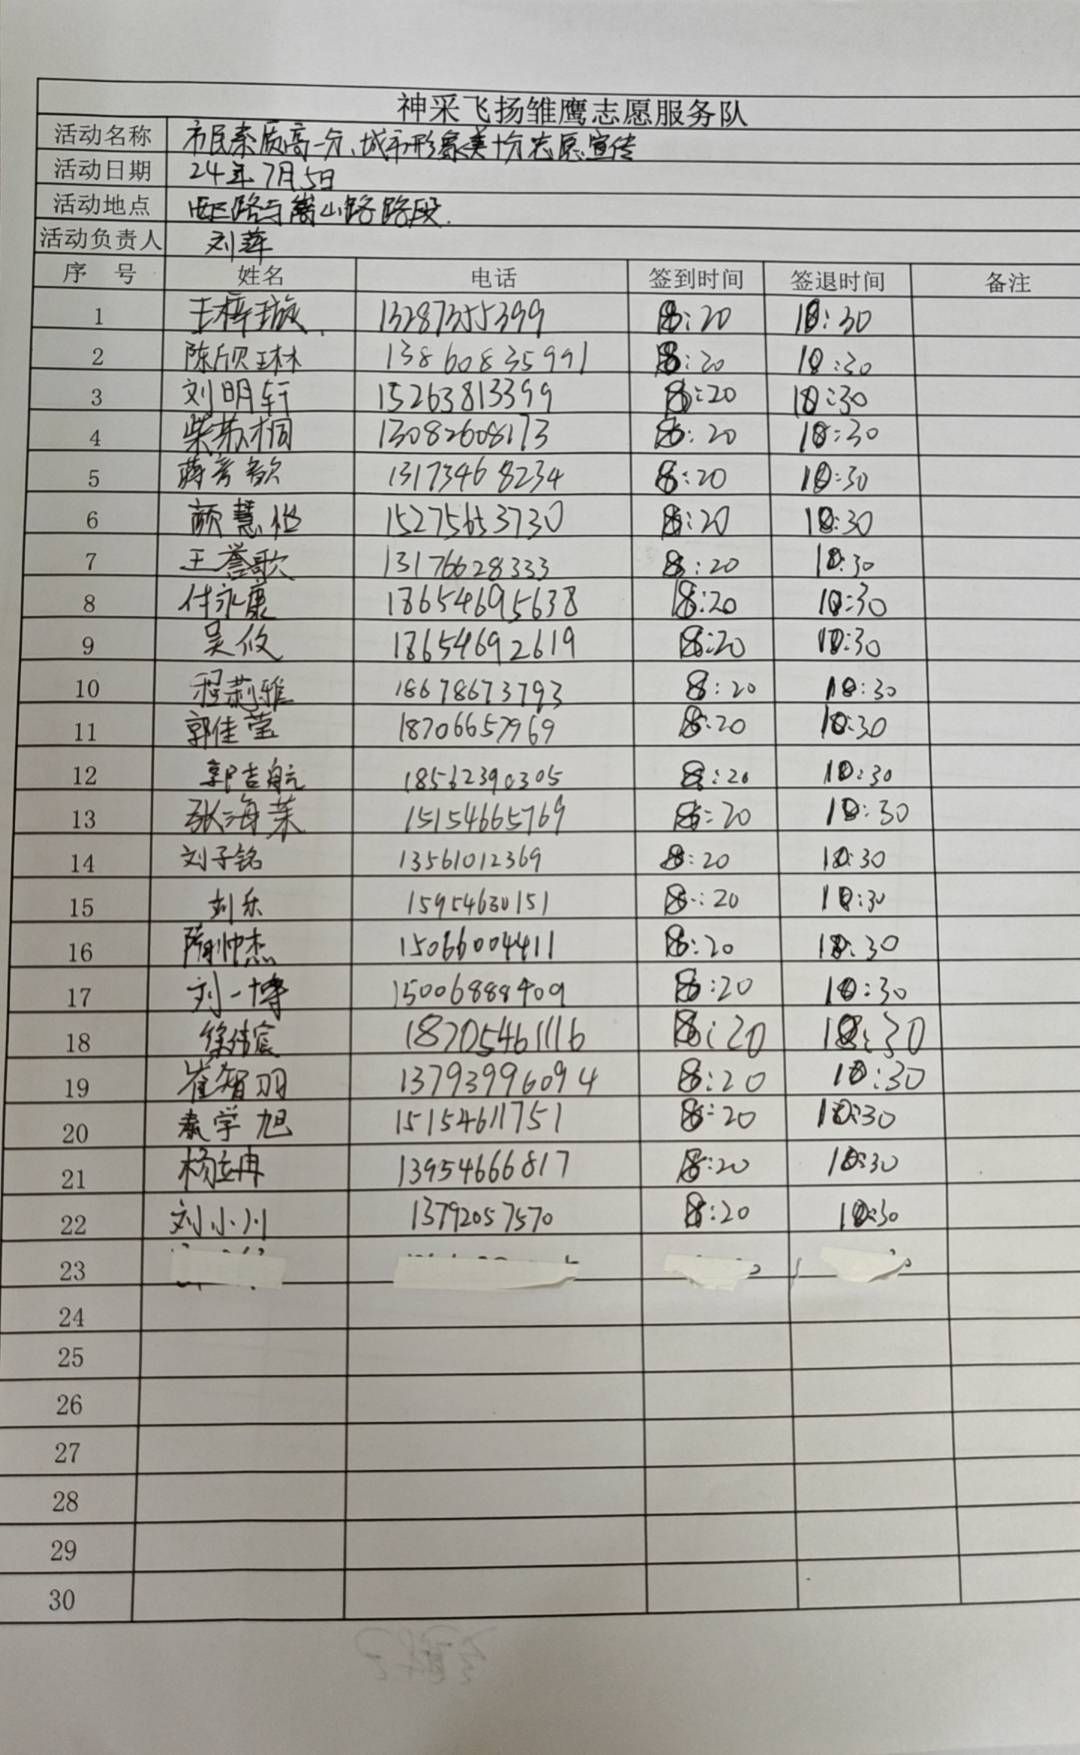 神采飞扬雏鹰志愿服务队
活动名称 市民素质高一分、城市形象美十分志愿宣传
活动日期 24年7月5日
活动地点 路与嵩山路路段.
活动负责人 刘萍
序号 姓名 电话 签到时间 签退时间 备注
1 王梓璇 13287355399 8:20 10:30
2 陈欣琳 13860835991 8:20 10:30
3 刘明轩 15263813399 8:20 10:30
4 柴苏桐 13082608173 8:20 10:30
5 1317346 8234 8:20 10:30
6 颜慧 15275653730 8:20 10:30
7 王誉歌 13176628333 8:20 10:30
8 付永康 18654695638 8:20 10:30
9 吴攸 18654692619 8:20 10:30
10 程莉雅 18678673793 8:20 10:30
11 郭佳莹 18706657969 8:20 10:30
12 郭吉航 18562390305 8:20 10:30
13 张海茉 15154665769 8:20 10:30
14 刘子铭 13561012369 8:20 10:30
15 刘乐 15954630151 8:20 10:30
16 隋帅杰 15066004411 8:20 10:30
17 刘一博 15006888909 8:20 10:30
18 徐梓宸 18705461116 8:20 10:30
19 崔智羽 13793996094 8:20 10:30
20 袁学旭 15154611751 8:20 10:30
21 杨益冉 13954666817 8:20 10:30
22 刘小川 13792057570 8:20 10:30
23
24
25
26
27
28
29
30